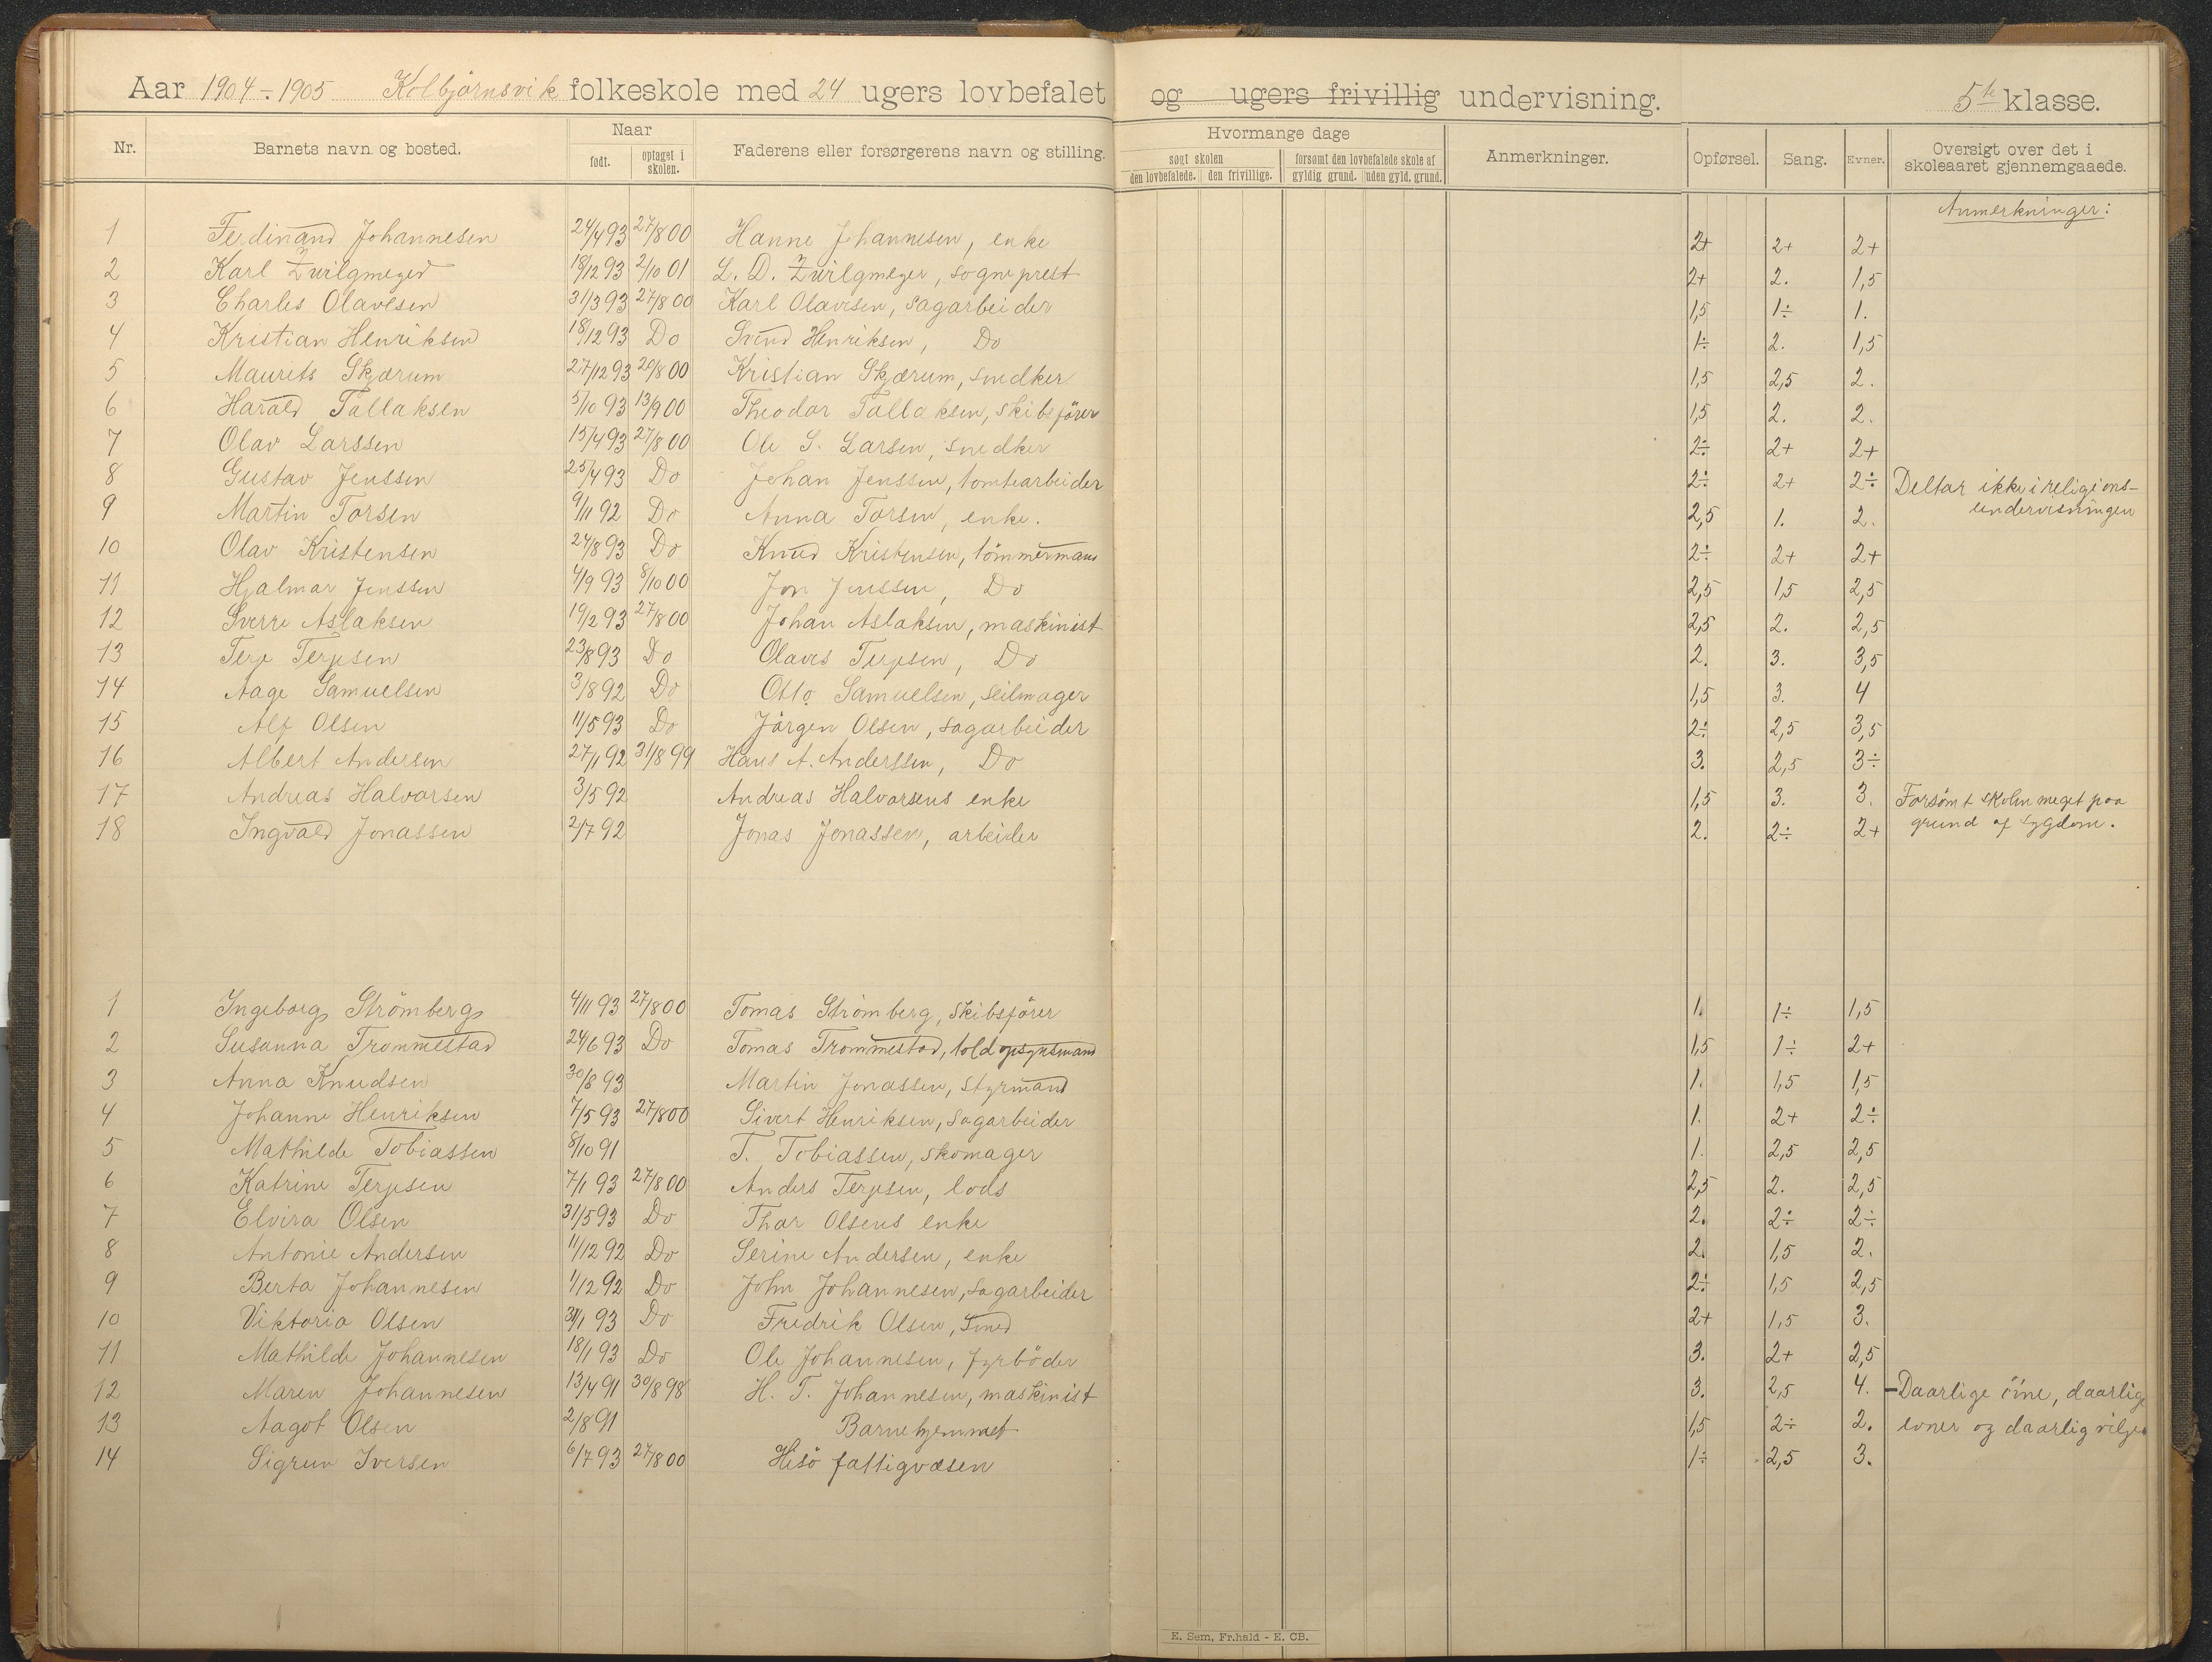 Aar 1904-1905 Kolbjörnsvik folkeskole med 24 ugers lovbefalet og ugers frivillig undervisning. 5te klasse.
Nr. Barnets navn og bosted. Naar født. optaget i skolen. Faderens eller forsørgerens navn og stilling. Hvormange dage søgt skolen den lovbefalede. den frivillige. forsømt den lovbefalede skole af gyldig grund. uden gyld. grund. Anmerkninger. Opførsel. Sang. Evner. Oversigt over det i skoleaaret gjennemgaaede.
Anmerkninger:
1 Ferdinand Johannesen 24/4 93 27/8 00 Hanne Johannesen, enke 2+ 2+ 2+
2 Karl Zwilgmeyer 18/12 93 2/10 01 L. D. Zwilgmeyer, sogneprest 2+ 2. 1,5
3 Charles Olavesen 31/3 93 27/8 00 Karl Olavesen, sagarbeider 1,5 1÷ 1.
4 Kristian Henriksen 18/12 93 Do Svend Henriksen, Do 1÷ 2. 1,5
5 Maurits Skjærum 27/12 93 20/8 00 Kristian Skjærum, snedker 1,5 2,5 2.
6 Harald Tallaksen 5/10 93 13/9 00 Theodor Tallaksen, skibsförer 1,5 2. 2.
7 Olav Larssen 15/4 93 27/8 00 Ole S. Larsen, snedker 2÷ 2+ 2+
8 Gustav Jenssen 25/4 93 Do Johan Jenssen, tomtearbeider 2÷ 2+ 2÷ Deltar ikke i religions-
9 Martin Torsen 9/11 92 Do Anna Torsen, enke. 2,5 1. 2. undervisningen
10 Olav Kristensen 24/8 93 Do Knud Kristensen, tömmermand 2÷ 2+ 2+
11 Hjalmar Jenssen 4/9 93 8/10 00 Jon Jenssen, Do 2,5 1,5 2,5
12 Sverre Aslaksen 19/2 93 27/8 00 Johan Aslaksen, maskinist 2,5 2. 2,5
13 Terje Terjesen 23/8 93 Do Olaves Terjesen, Do 2. 3. 3,5
14 Aage Samuelsen 3/8 92 Do Otto Samuelsen, seilmager 1,5 3. 4
15 Alf Olsen 11/5 93 Do Jörgen Olsen, sagarbeider 2÷ 2,5 3,5
16 Albert Andersen 27/1 92 31/8 99 Hans A. Anderssen, Do 3. 2,5 3÷
17 Andreas Halvorsen 3/5 92 Andreas Halvorsens enke 1,5 3. 3. Forsömt skolen meget paa
18 Ingvald Jonassen 2/7 92 Jonas Jonassen, arbeider 2. 2÷ 2+ grund af sygdom.
1 Ingeborg Strömberg 4/11 93 27/8 00 Tomas Strömberg, skibsförer 1. 1÷ 1,5
2 Susanna Trommestad 24/6 93 Do Tomas Trommestad, toldopsynsmand 1,5 1÷ 2+
3 Anna Knudsen 30/8 93 Martin Jonassen, styrmand 1. 1,5 1,5
4 Johanne Henriksen 7/5 93 27/8 00 Sivert Henriksen, sagarbeider 1. 2+ 2÷
5 Mathilde Tobiassen 8/10 91 T. Tobiassen, skomager 1. 2,5 2,5
6 Katrine Terjesen 7/1 93 27/8 00 Anders Terjesen, lods 2,5 2. 2,5
7 Elvira Olsen 31/5 93 Do Thor Olsens enke 2. 2÷ 2÷
8 Antonie Andersen 11/12 92 Do Serine Andersen, enke 2. 1,5 2.
9 Berta Johannesen 1/12 92 Do John Johannesen, sagarbeider 2÷ 1,5 2,5
10 Viktoria Olsen 31/1 93 Do Fredrik Olsen, smed 2+ 1,5 3.
11 Mathilde Johannesen 18/1 93 Do Ole Johannesen, fyrböder 3. 2+ 2,5
12 Maren Johannesen 13/4 91 30/8 98 H. T. Johannesen, maskinist 3. 2,5 4. -Daarlige öine, daarlige
13 Aagot Olsen 2/8 91 Barnehjemmet 1,5 2÷ 2. evner og daarlig vilje.
14 Sigrun Iversen 6/7 93 27/8 00 Hisö fattigvæsen 1÷ 2,5 3.
E. Sem, Fr.hald - E. CB.